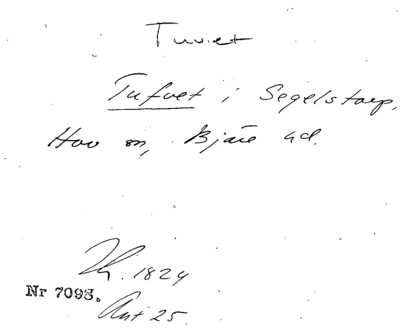 Tuvet
Tufvet i Segelstorp,
Hov sn, Bjäre hd.
1824
Nr 7093.
Ant 25